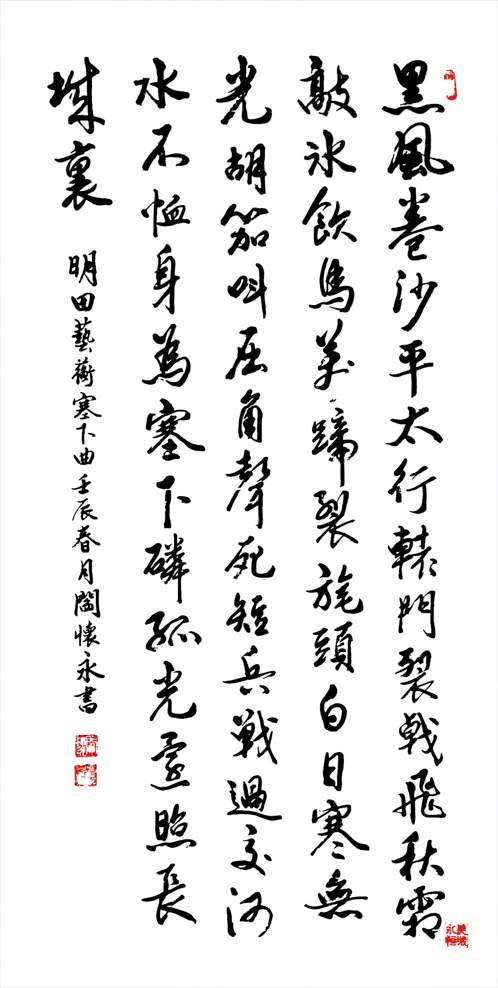 黑風卷沙平太行轅門裂戟飛秋霜
敲冰飲馬萬蹄裂旄頭白日寒無
光胡笳叫屈角聲死短兵戰過交河
水不恤身為塞下磷孤光還照長
城裏
明田藝蘅塞下曲壬辰春月閻懷永書